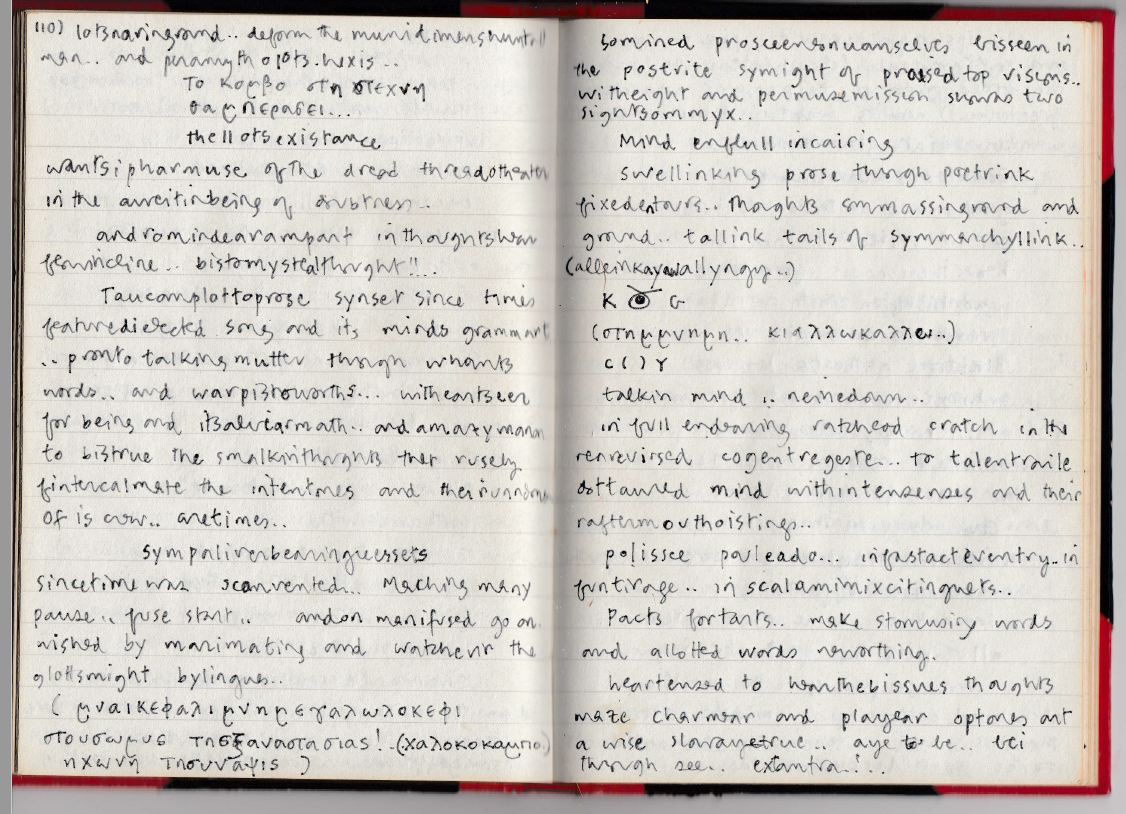 110) lotsnaringround.. deform the munidimenshuntill
man.. and paramyth o lots.hexis..
Το κομβο στη στεχνη
θα μπερασει...
the llots existance
wantsipharmuse of the dread threadotheater
in the aureitinbeing of doubtness..
andromindearampart inthoughtshear
femincline.. bistomystealthought!!...
Taucomplottoprose synset since times
featuredierected song and its minds grammart
.. pronto talking mutter though whants
words.. and warpistoworths... witheartseen
for being and itsaluearmath.. and amazymann
to bistrue the smalkinthoughts that rusely
fintercalmate the intentones and their
of is crow.. aretimes..
sympaliverbearinguessets
sincetime was scanvented... Maching many
pause.. fuse start.. andon manifused go on.
wished by marimating and watchevir the
glottsmight bylingues..
( μναικεφαλι μνημεγαλωλοκεφι
στουσωμυς τησξαναστασιας! (χαλοκοκαμπιο.)
ηχωνη τησυναψις )
somined prosceensonuanselves bisseen in
the postrite symight of praised top visems..
witheight and permusemission shownos two
sightsommyx..
Mind enfull incairing
swellinking prose though poetrink
fixedentours.. thoughts ommassinground and
ground.. tallink tails of symmenchyllink..
K G
(στημμνημη.. κιαλλωκαλλει..)
C ( ) Y
talkin mind .. neinedown..
in full endeaving ratchead cratch in its
renrevirsed cogentregeste... to talentraile
osttauned mind withintenzenzes and their
raftermouthoistings..
polissee pauleado... infastacteventry.. in
funtirage.. in scalamimixcitinguets..
Pacts fortants.. make stomusing words
and allotted words neworthing.
heartenzed to hearthebissues thoughts
maze charmear and playear optones ant
a wise slowayetrue.. aye to be.. bei
through see.. extantra.!...